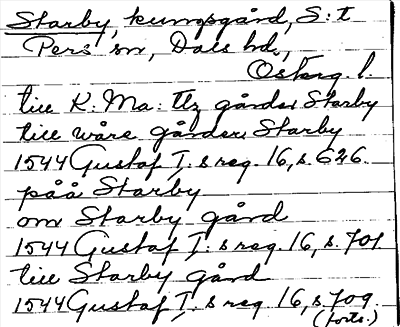 Starby, kungsgård, S:t
Pers sn, Dals hd,
Österg. l.
till K. Ma: ttz gårder Starby
till wåre gårder Starby
1544 Gustaf I:s reg. 16, s. 626.
påå Starby
om Starby gård
1544 Gustaf I:s reg. 16, s. 701.
till Starby gård
1544 Gustaf I:s reg. 16, s. 709.
(forts.)